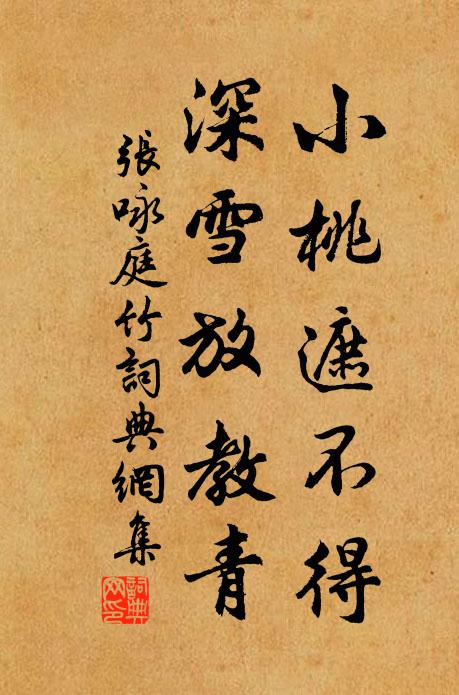 小桃遮不得
深雪放教青
張咏庭竹詞典網集
詞典網印